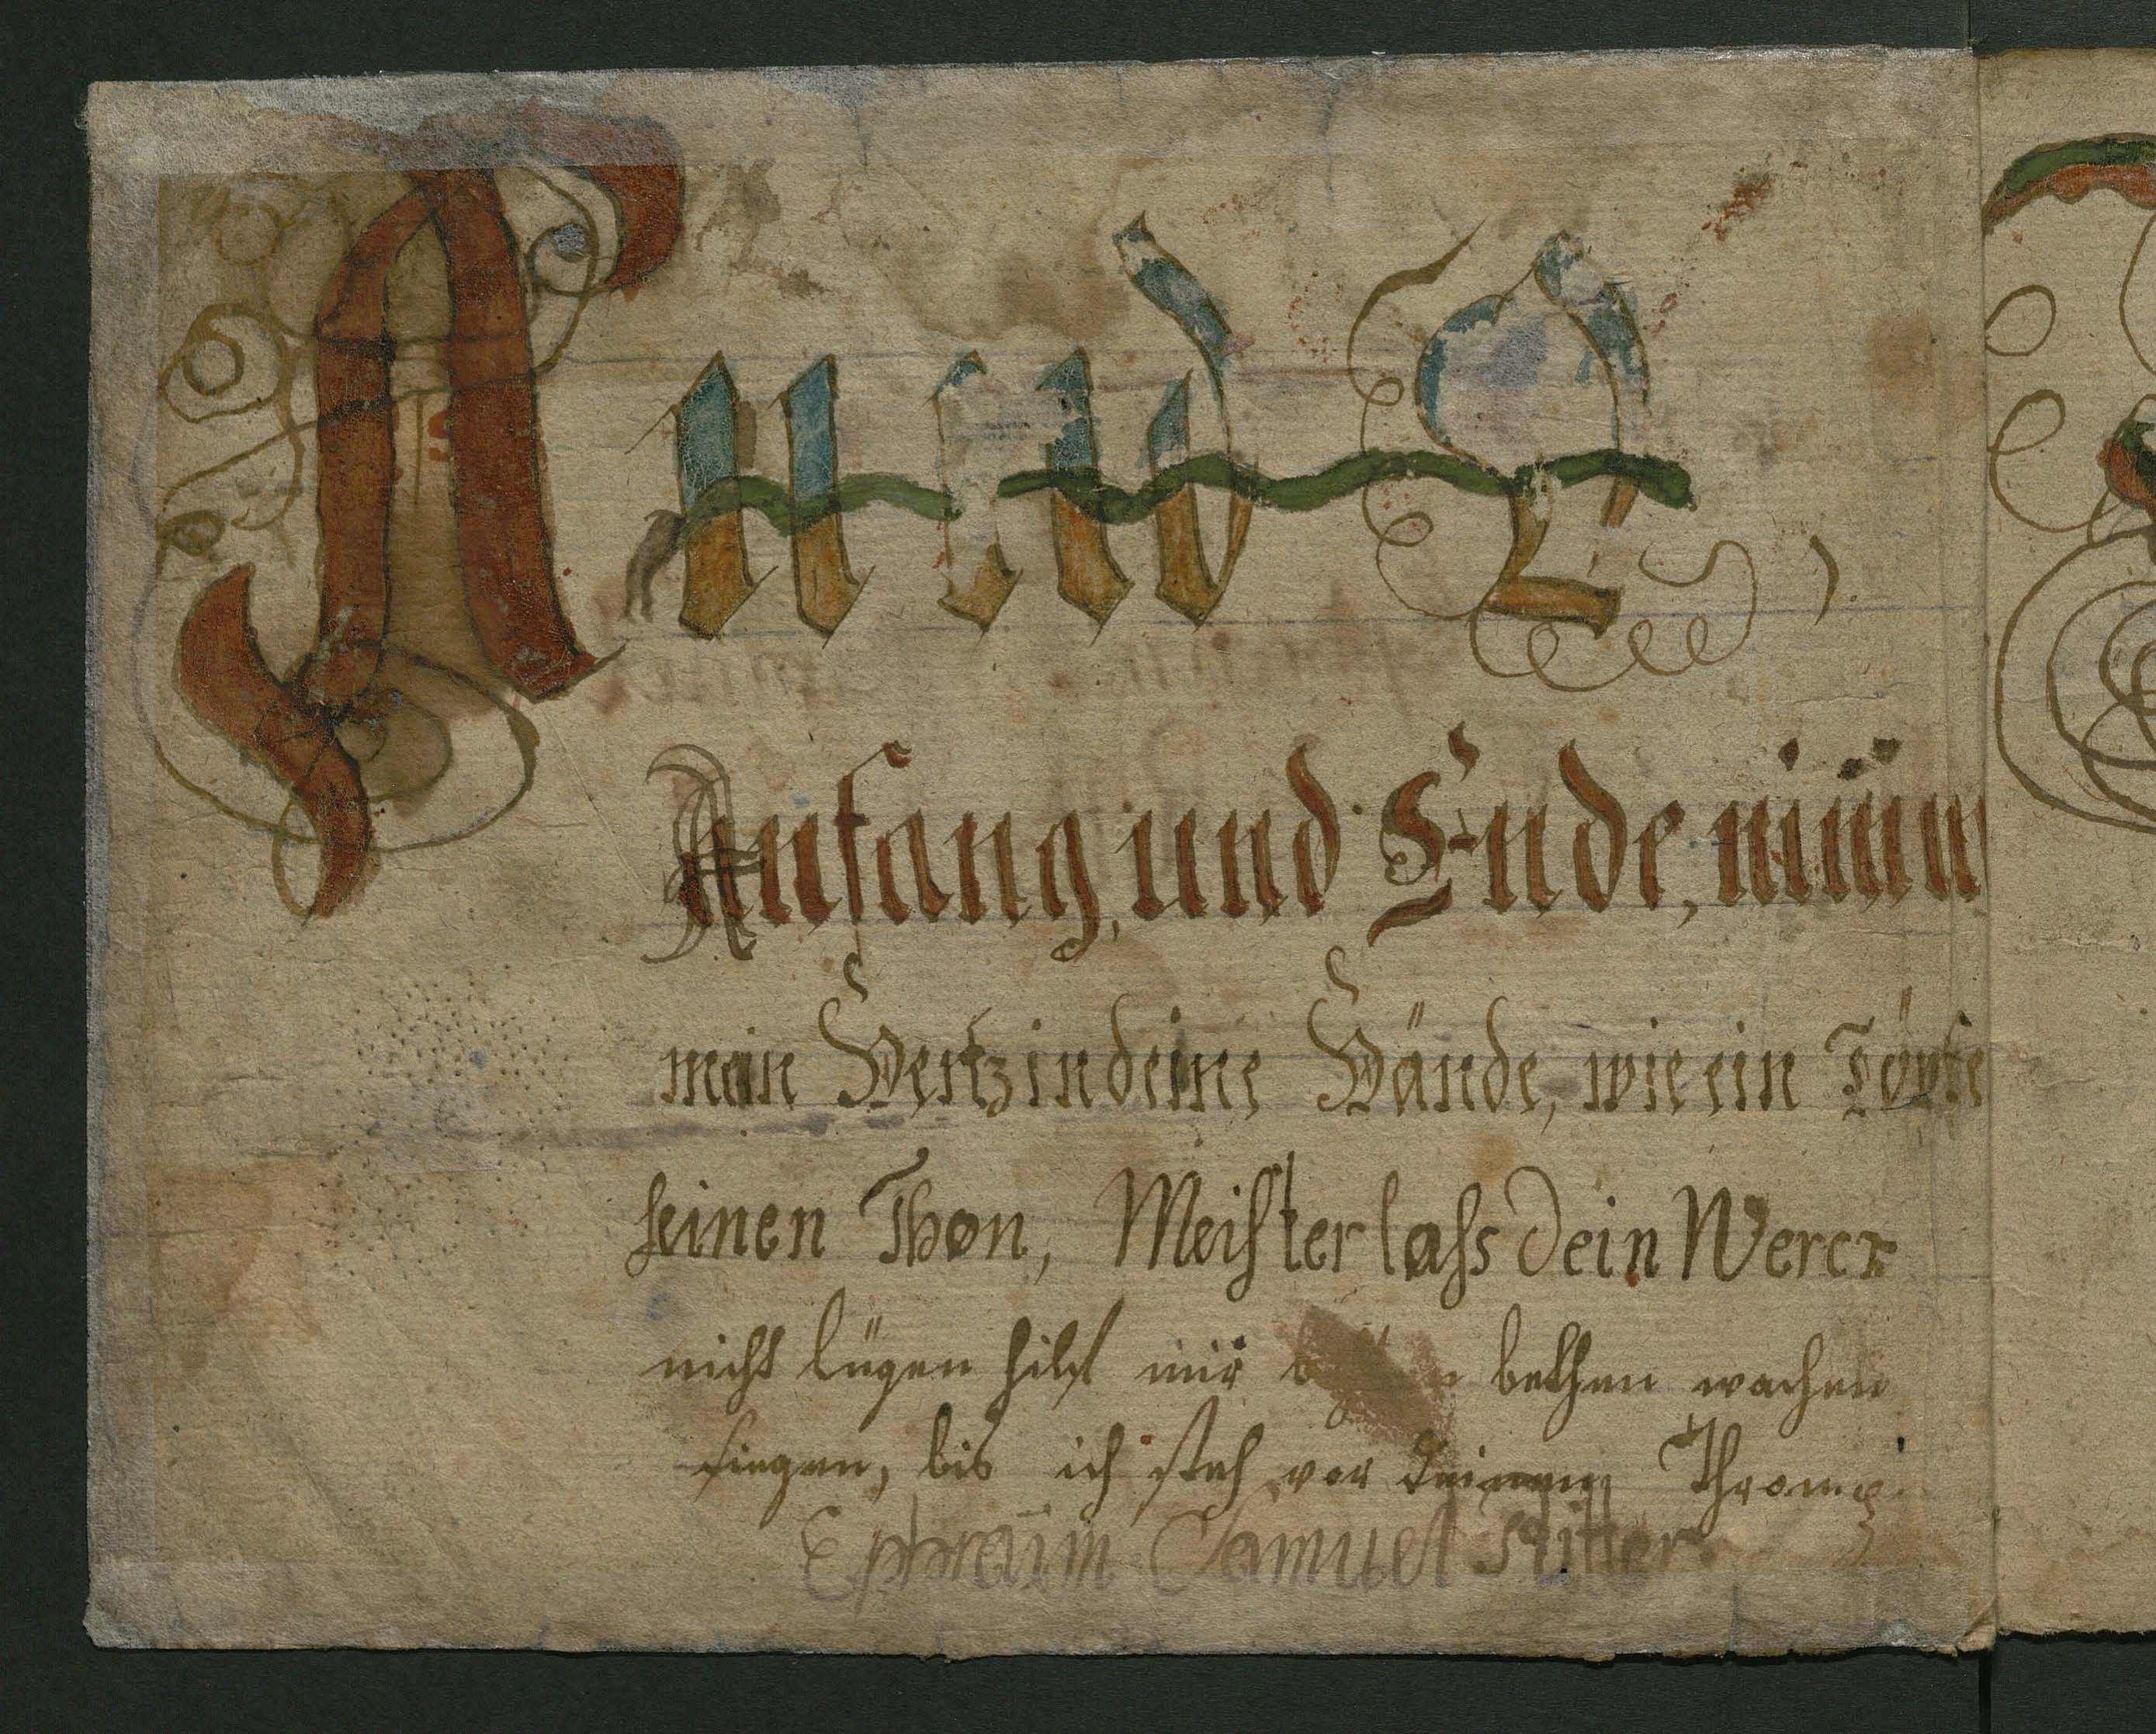 A und O,
Anfang, und Ende, nimm
mein Hertz in deine Hände, wie ein Töpfe
seinen Thon, Meister lass dein Werck
nicht lügen hilf mir bethen wachen
siegen, bis ich steh vor deinem Thron.
Ephraim Samuel Ritter